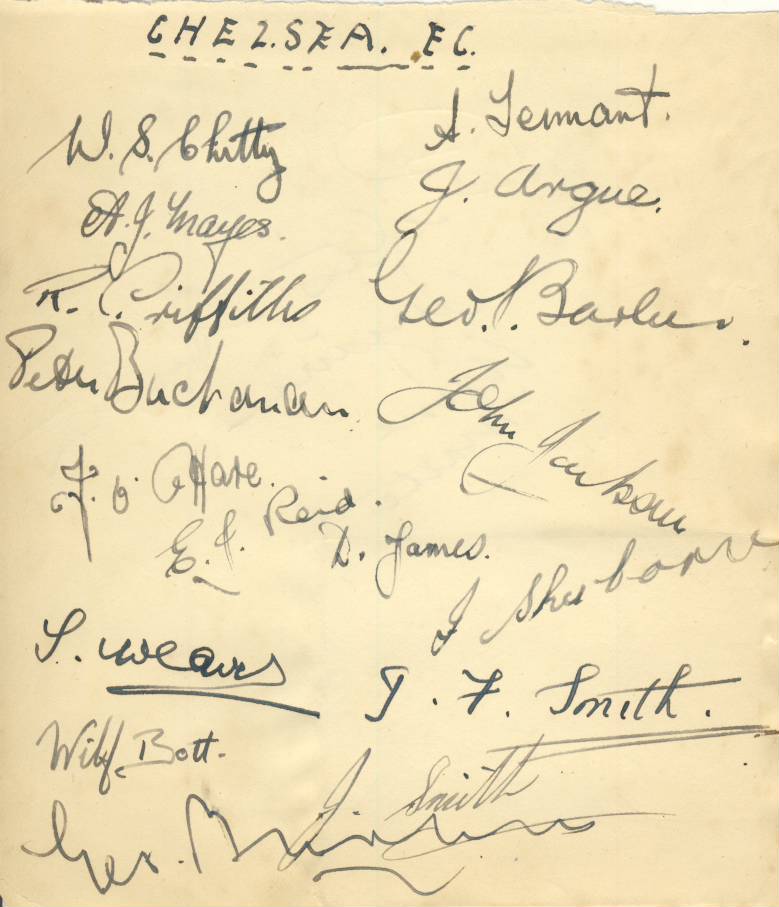 CHELSEA. F.C.
W. S. Chitty
A. Tennant.
A. J. Mayes.
J. Argue.
R. C. Griffiths
Geo. Barber.
Peter Buchanan
John Jackson
F. O. O'Hare.
E. J. Reid.
D. James.
J Sherborne
S. Weaver
J. F. Smith.
Wilf. Bott.
J. Smith
Geo.